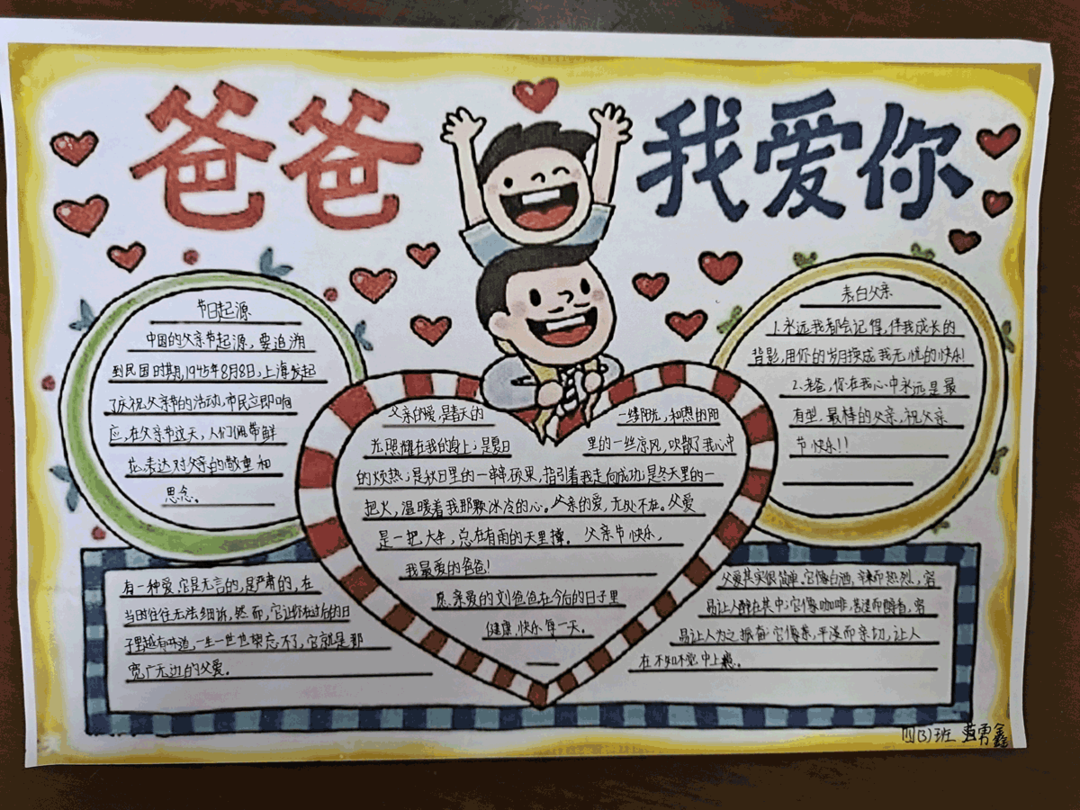 爸爸 我爱你
节日起源
中国的父亲节起源，要追溯
到民国时期，1945年8月8日，上海发起
了庆祝父亲节的活动，市民立即响
应，在父亲节这天，人们佩带鲜
花，表达对父亲的敬重和
思念。
表白父亲
1.永远我都会记得，伴我成长的
背影，用你的岁月换成我无忧的快乐！
2.老爸，你在我心中永远是最
有型，最棒的父亲，祝父亲
节快乐！！
父亲的爱，是春天的一缕阳光，和煦的阳
光照耀在我的身上；是夏日里的一丝凉风，吹散了我心中
的烦热；是秋日里的一串串硕果，指引着我走向成功；是冬天里的一
把火，温暖着我那颗冰冷的心。父亲的爱，无处不在。父爱
是一把大伞，总在有雨的天里撑。父亲节快乐，
我最爱的爸爸！
愿亲爱的刘爸爸在今后的日子里
健康，快乐每一天。
有一种爱，它是无言的，是严肃的，在
当时往往无法细诉，然而，它让你在过后的日
子里越有味道，一生一世也忘不了，它就是那
宽广无边的父爱。
父爱其实很简单。它像白酒，辛辣而热烈，容
易让人醉在其中；它像咖啡，苦涩而醇香，容
易让人为之振奋；它像茶，平淡而亲切，让人
在不知不觉中上瘾。
四(3)班